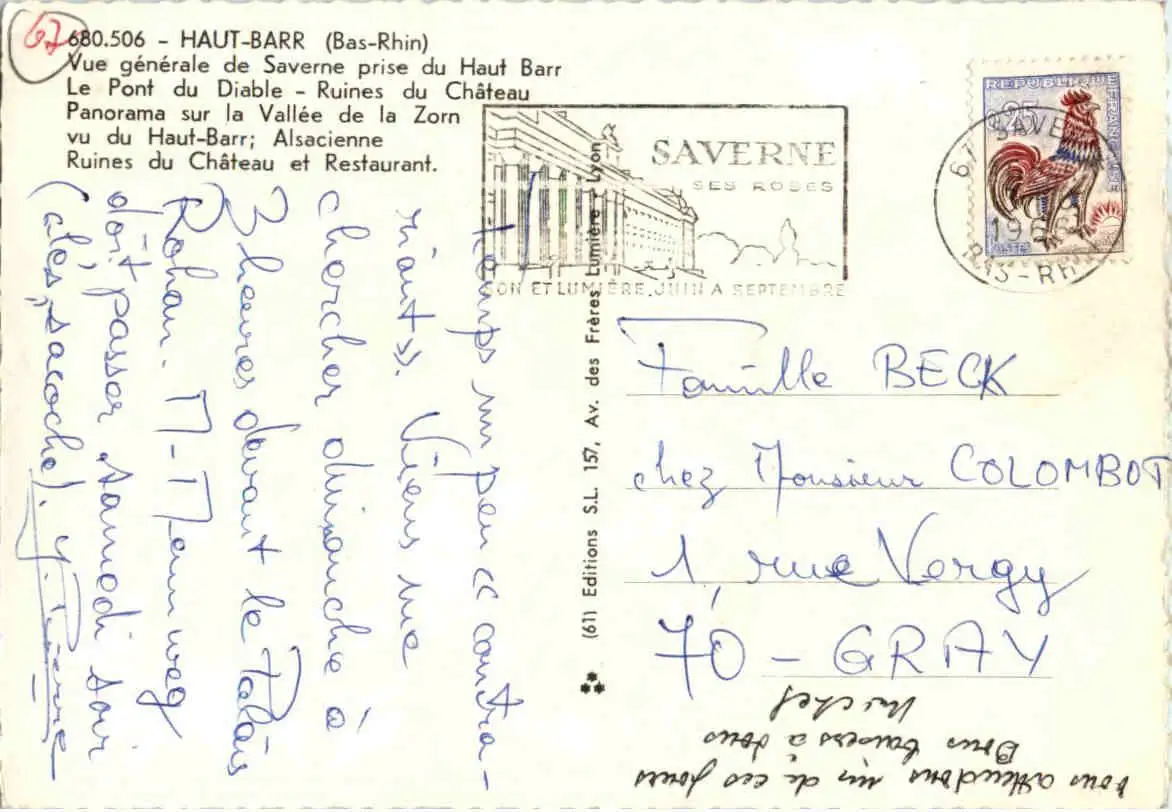 67
680.506 - HAUT-BARR (Bas-Rhin)
Vue générale de Saverne prise du Haut Barr
Le Pont du Diable - Ruines du Château
Panorama sur la Vallée de la Zorn
vu du Haut-Barr; Alsacienne
Ruines du Château et Restaurant.
SAVERNE
SES ROSES
SON ET LUMIÈRE, JUIN A SEPTEMBRE
REPUBLIQUE FRANÇAISE
67 SAVE
19
BAS-RH
temps un peu « contra-
riant ». Viens me
chercher dimanche à
3 heures devant le Palais
Rohan. M. Mennweg
doit passer samedi soir
(clés, sacoche).
(611 Editions S.L. 157, Av. des Frères Lumière - Lyon
Famille BECK
chez Monsieur COLOMBOT
1, rue Vergy
70 - GRAY
Vous attendons un de ces jours
Bons baisers à tous
Michel